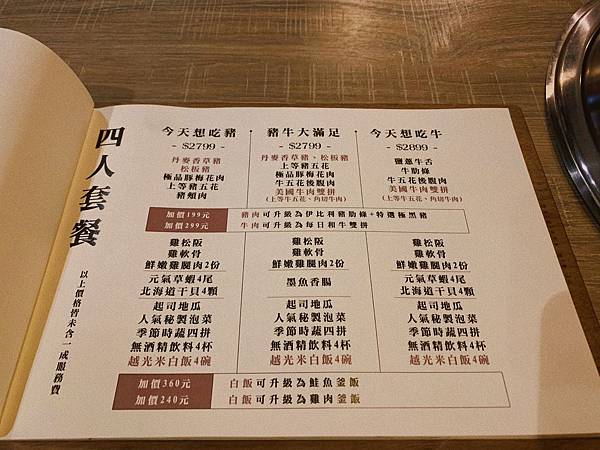 四人套餐
以上價格皆未含一成服務費
今天想吃豬
- $2799 -
丹麥香草豬
松板豬
極品豚梅花肉
上等豬五花
豬頰肉
豬牛大滿足
- $2799 -
丹麥香草豬、松板豬
上等豬五花
極品豚梅花肉
牛五花後腹肉
美國牛肉雙拼
(上等牛五花、角切牛肉)
今天想吃牛
- $2899 -
鹽蔥牛舌
牛肋條
牛五花後腹肉
美國牛肉雙拼
(上等牛五花、角切牛肉)
加價199元 豬肉可升級為伊比利豬肋條+特選極黑豬
加價299元 牛肉可升級為每日和牛雙拼
雞松阪
雞軟骨
鮮嫩雞腿肉2份
元氣草蝦4尾
北海道干貝4顆
起司地瓜
人氣秘製泡菜
季節時蔬四拼
無酒精飲料4杯
越光米白飯4碗
雞松阪
雞軟骨
鮮嫩雞腿肉2份
墨魚香腸
起司地瓜
人氣秘製泡菜
季節時蔬四拼
無酒精飲料4杯
越光米白飯4碗
雞松阪
雞軟骨
鮮嫩雞腿肉2份
元氣草蝦4尾
北海道干貝4顆
起司地瓜
人氣秘製泡菜
季節時蔬四拼
無酒精飲料4杯
越光米白飯4碗
加價360元 白飯可升級為鮭魚釜飯
加價240元 白飯可升級為雞肉釜飯